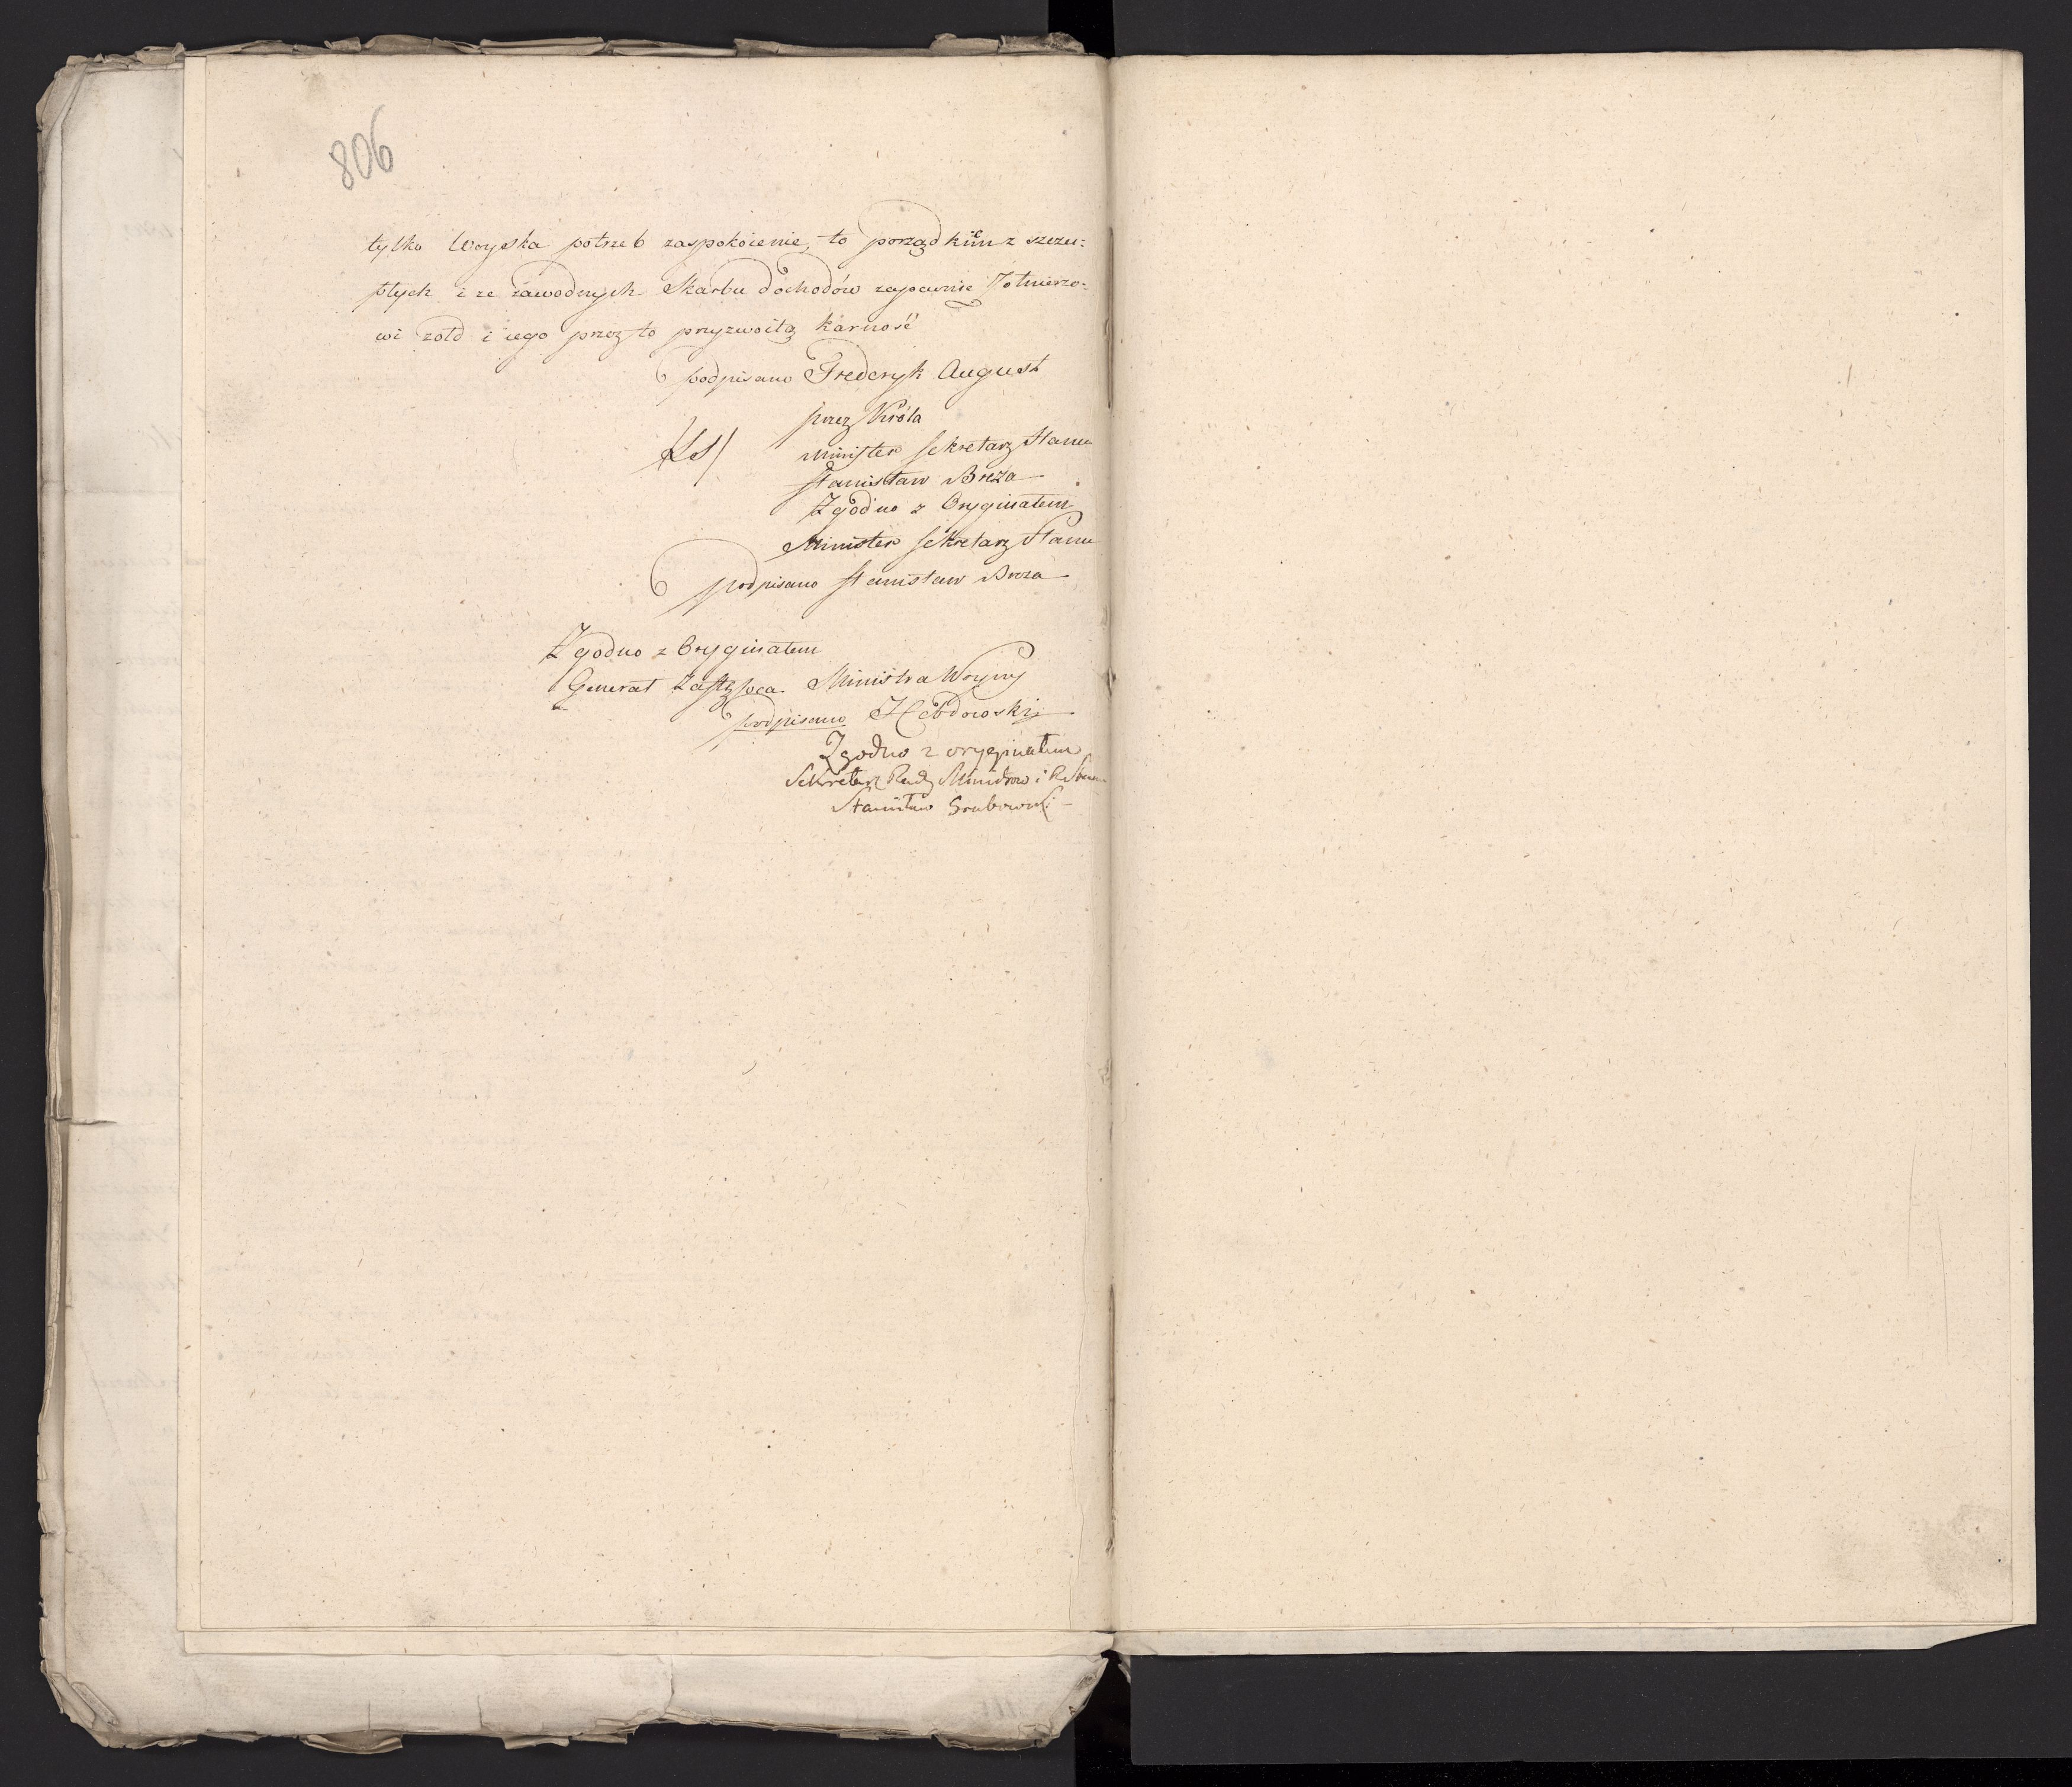 806
tylko Woyska potrzeb zaspokoienie, to porządkiem z szczu:
płych i ze zawodnych Skarbu dochodów zapewnie Żołnierzo:
wi żołd i iego przez to przyzwoitą karność
podpisano Frederyk August
przez Króla
(LS) Minister Sekretarz Stanu
Stanisław Breza
Zgodno z Oryginałem
Minister Sekretarz Stanu
podpisano Stanisław Breza
Zgodno z Oryginałem
Generał Zastępca Ministra Woyny
podpisano Hebdowski
Zgodno z oryginałem
Sekretarz Rady Ministrów i R Stanu
Stanisław Grabowski